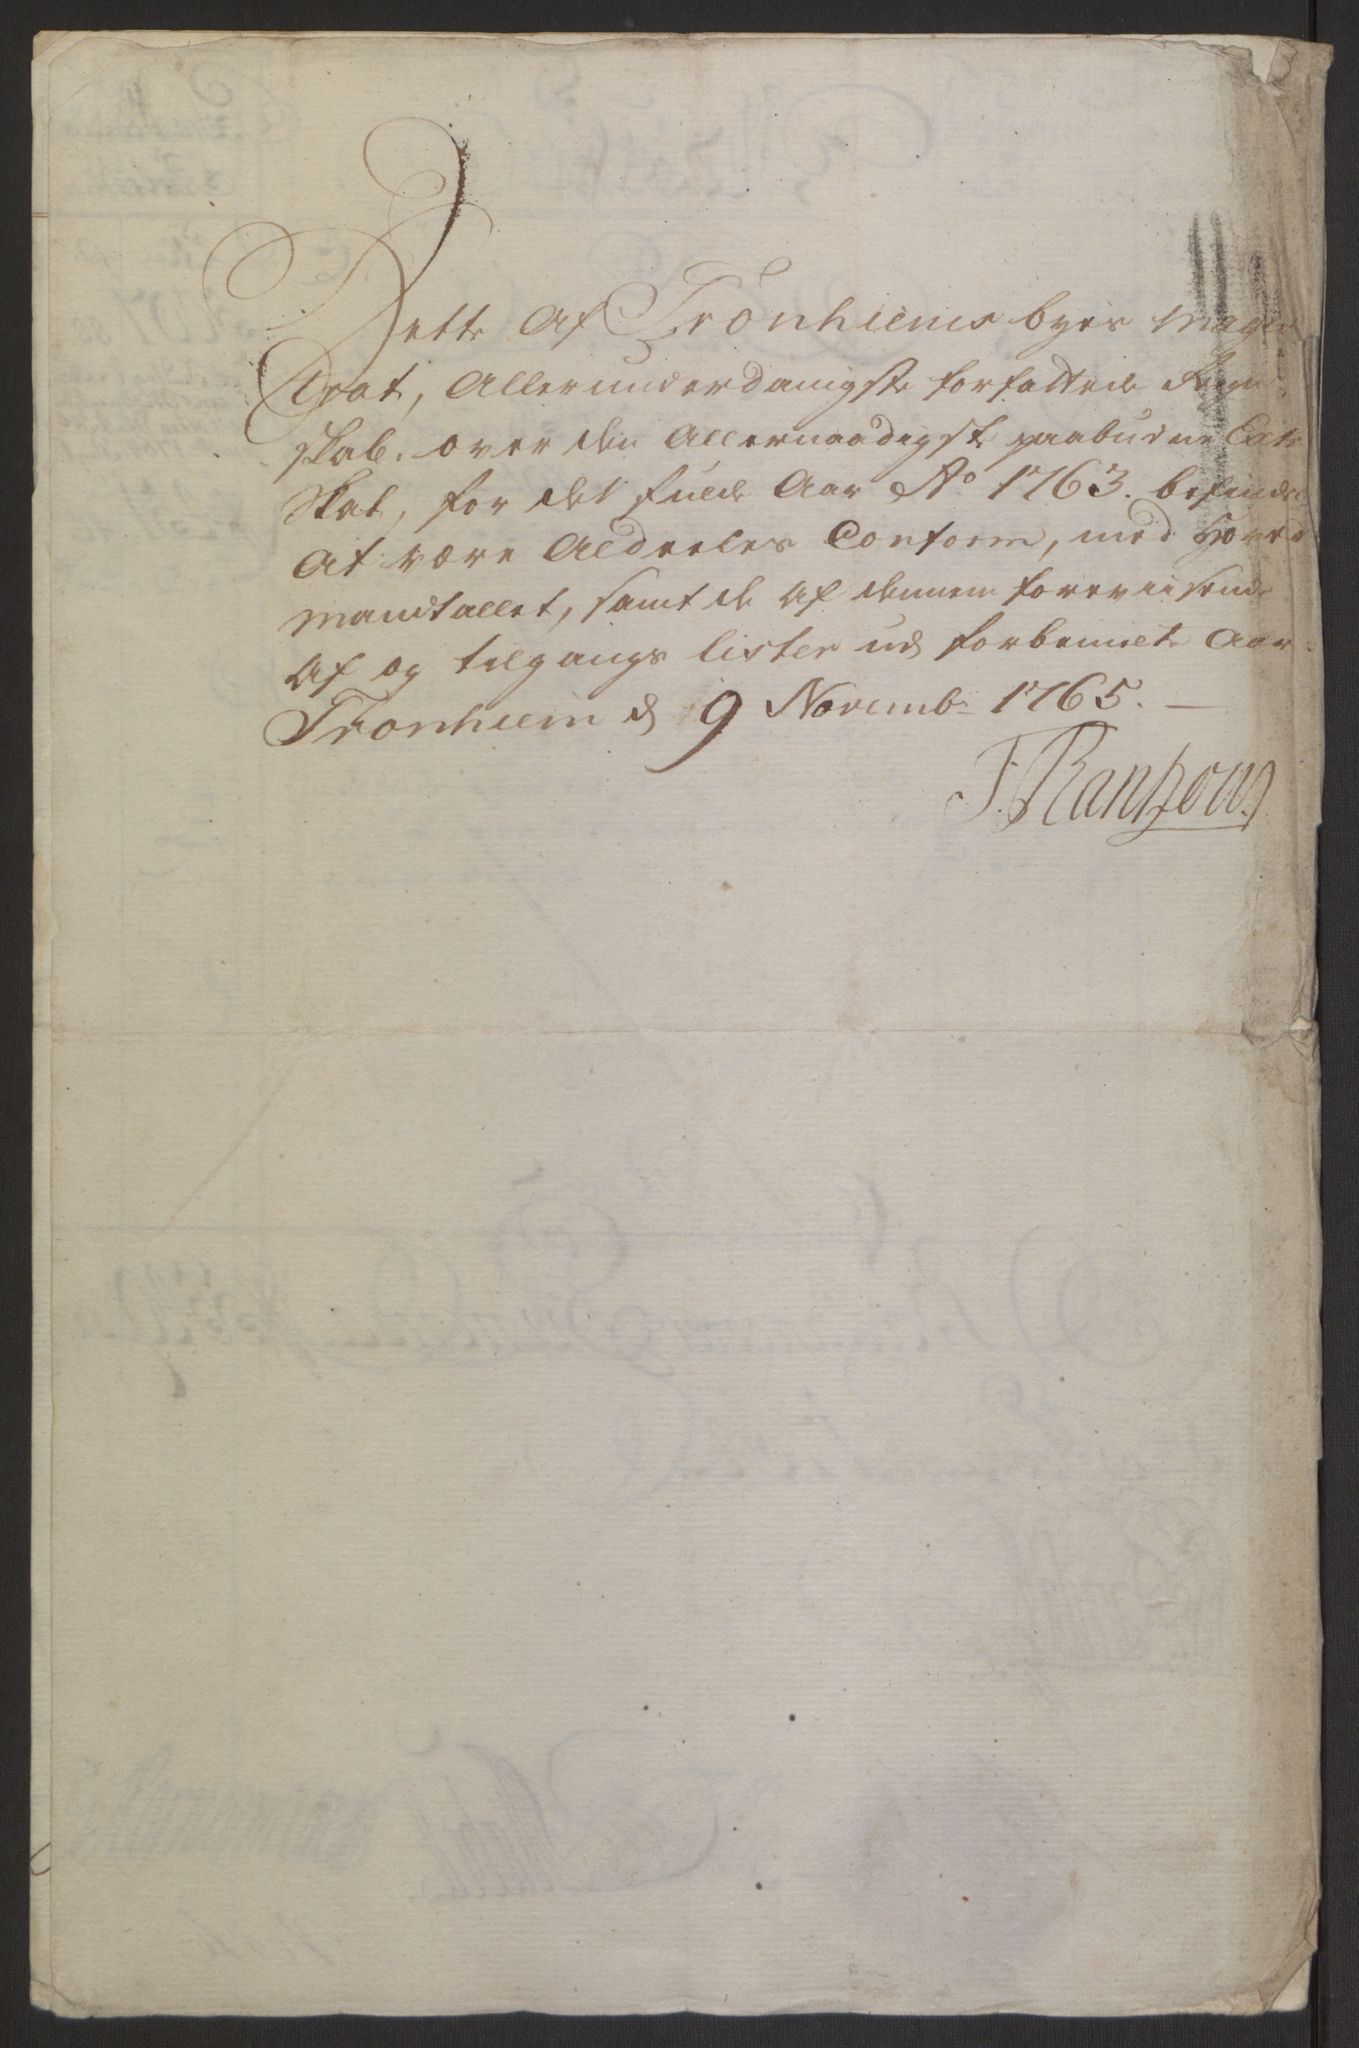 Dette Af Tronhiems byes Magi
strat, Allerunderdanigste forfattede Regn
skab. over den Allernaadigst paabudne Extr
Skat, for det fulde Aar Ao 1763. befindes
At være Aldeeles Conform, med Hoved
Mandtallet, samt de Af dennem foreviisende
Af og tilgangs lister ud forbemelte Aar.
Tronhiem d 9 Novembr 1765.
F. Rantzow